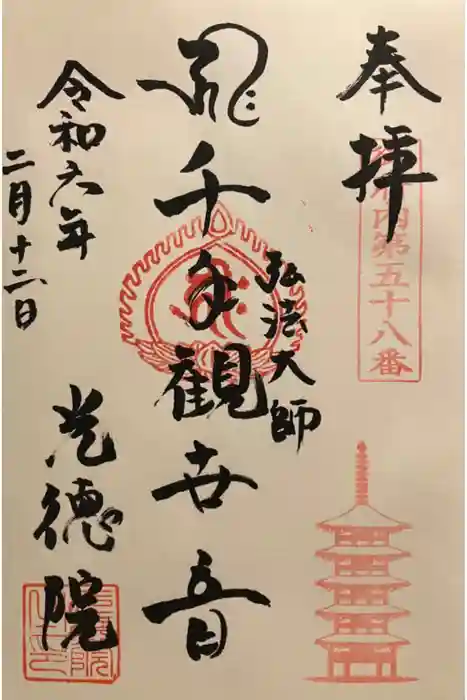 奉拝
御府内第五十八番
千手観世音
弘法大師
令和六年
二月十二日
光徳院